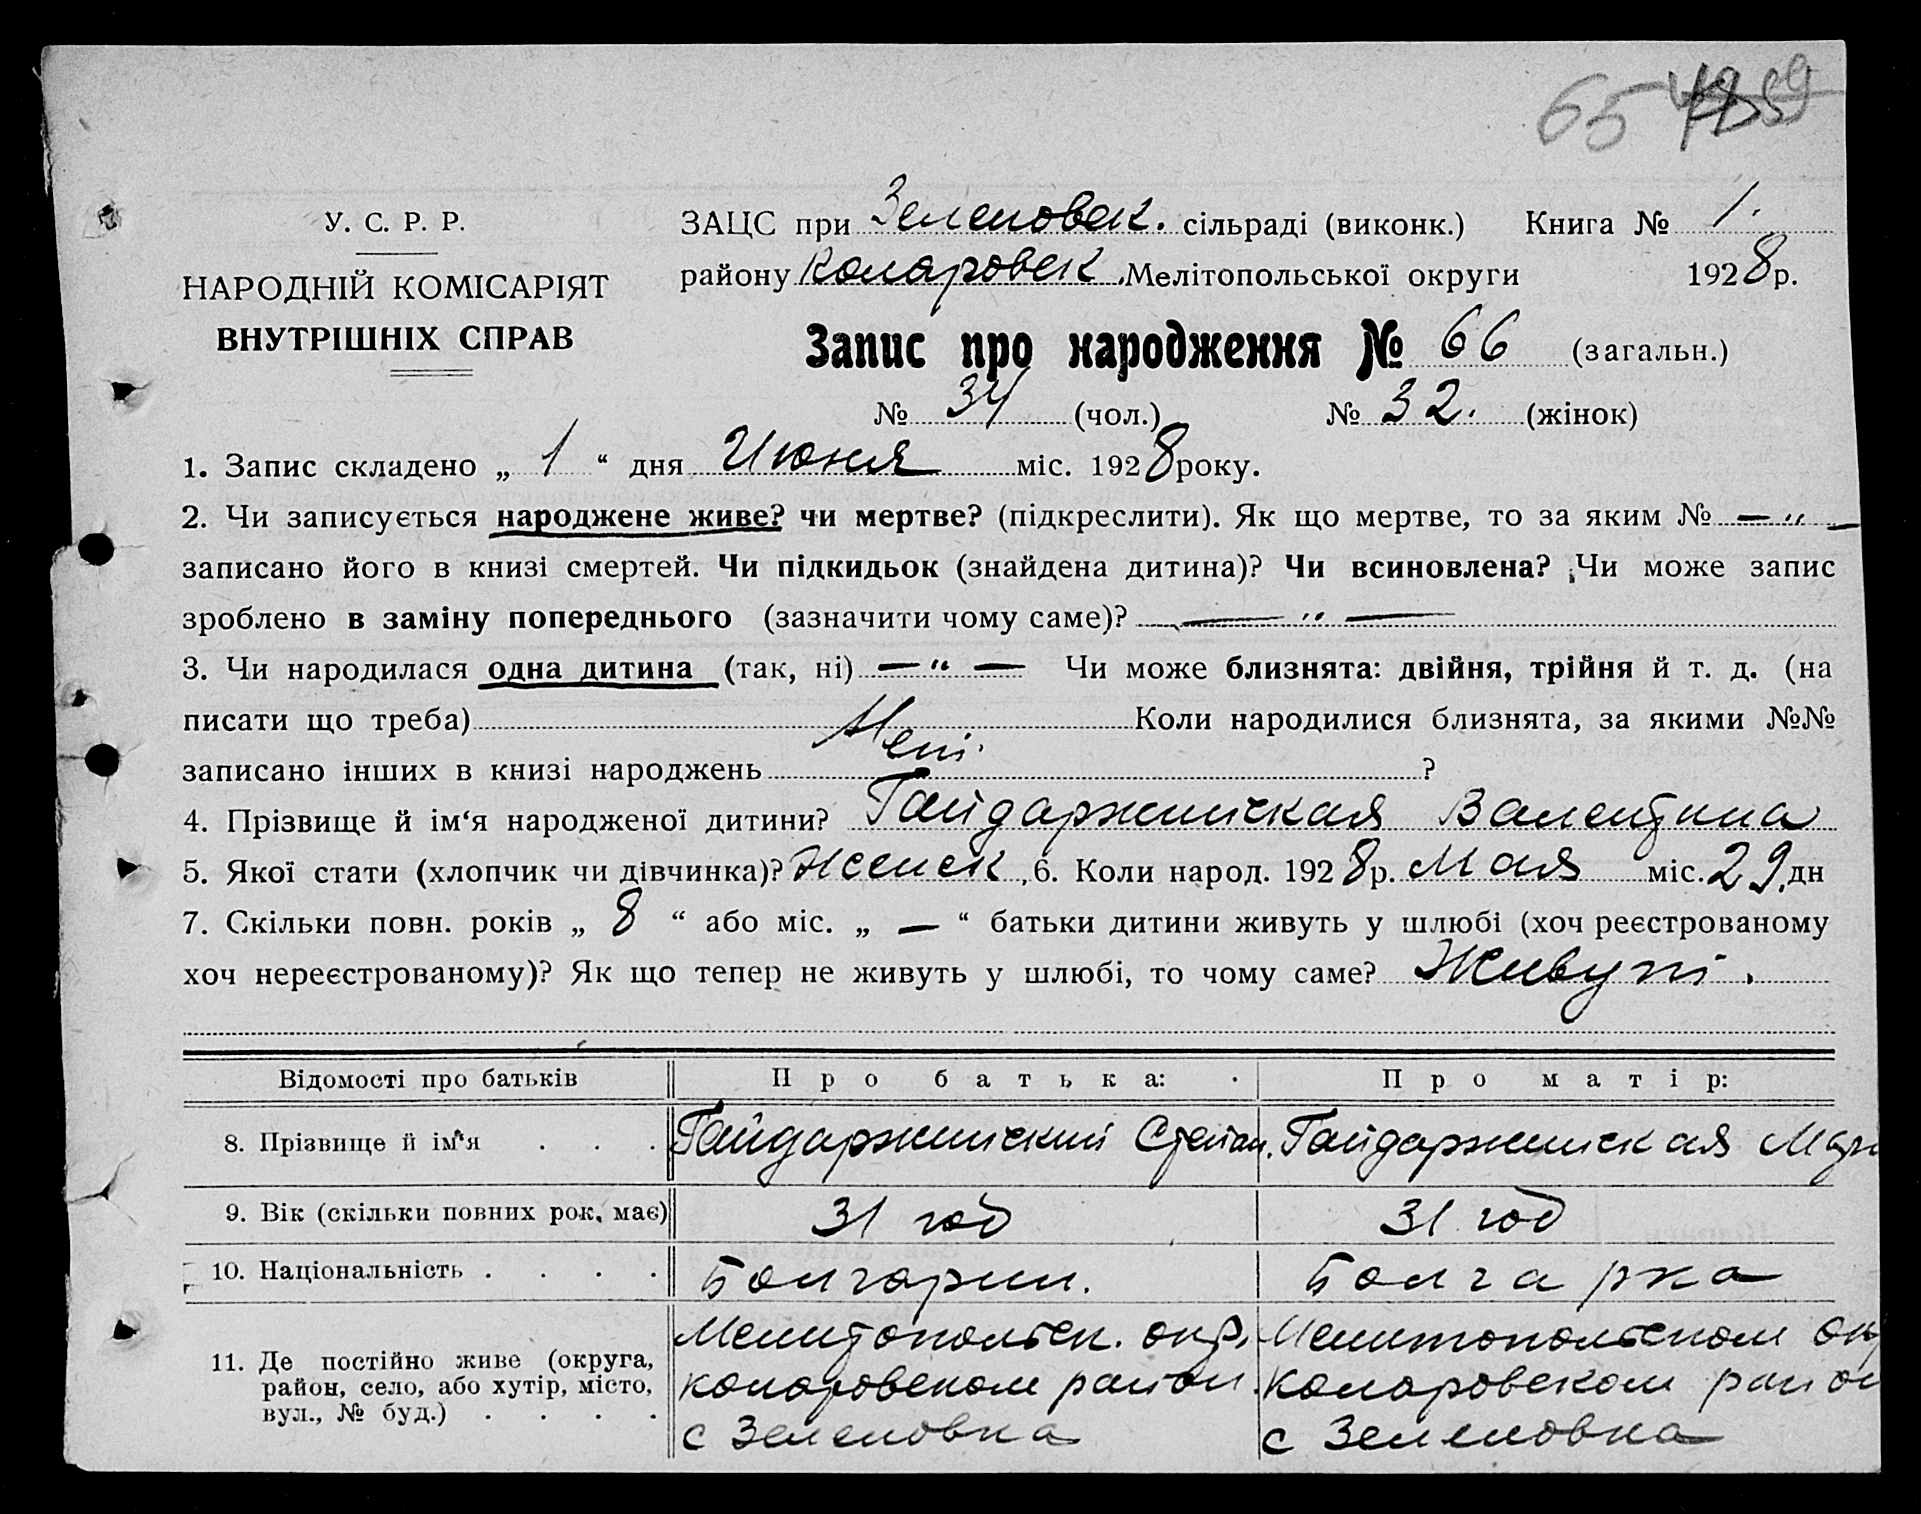 65
У. С. Р. Р.
НАРОДНІЙ КОМІСАРІЯТ
ВНУТРІШНІХ СПРАВ
ЗАЦС при Зеленовск. сільраді (виконк.) Книга № 1.
району Коларовск. Мелітопольської округи 1928 р.
Запис про народження № 66 (загальн.)
№ 34 (чол.) № 32. (жінок)
1. Запис складено „ 1 “ дня Июня міс. 1928 року.
2. Чи записується народжене живе? чи мертве? (підкреслити). Як що мертве, то за яким № — „ —
записано його в книзі смертей. Чи підкидьок (знайдена дитина)? Чи всиновлена? Чи може запис
зроблено в заміну попереднього (зазначити чому саме)? — „ —
3. Чи народилася одна дитина (так, ні) — „ — Чи може близнята: двійня, трійня й т. д. (на
писати що треба) Коли народилися близнята, за якими №№
записано інших в книзі народжень Нет. ?
4. Прізвище й ім‘я народженої дитини? Гайдаржийская Валентина
5. Якої стати (хлопчик чи дівчинка)? Женск. 6. Коли народ. 1928 р. Мая міс. 29. дн
7. Скільки повн. років „ 8 “ або міс. „ — “ батьки дитини живуть у шлюбі (хоч реєстрованому
хоч нереєстрованому)? Як що тепер не живуть у шлюбі, то чому саме? Живут.
Відомості про батьків Про батька: Про матір:
8. Прізвище й ім‘я . . . Гайдаржийский Степан. Гайдаржийская Мар
9. Вік (скільки повних рок. має) 31 год 31 год
10. Національність . . . . Болгарин. Болгарка
11. Де постійно живе (округа, Мелитопольск. окр. Мелитопольском окр
район, село, або хутір, місто, коларовском район. Коларовском район
вул., № буд.) . . . . с Зеленовка с Зеленовка